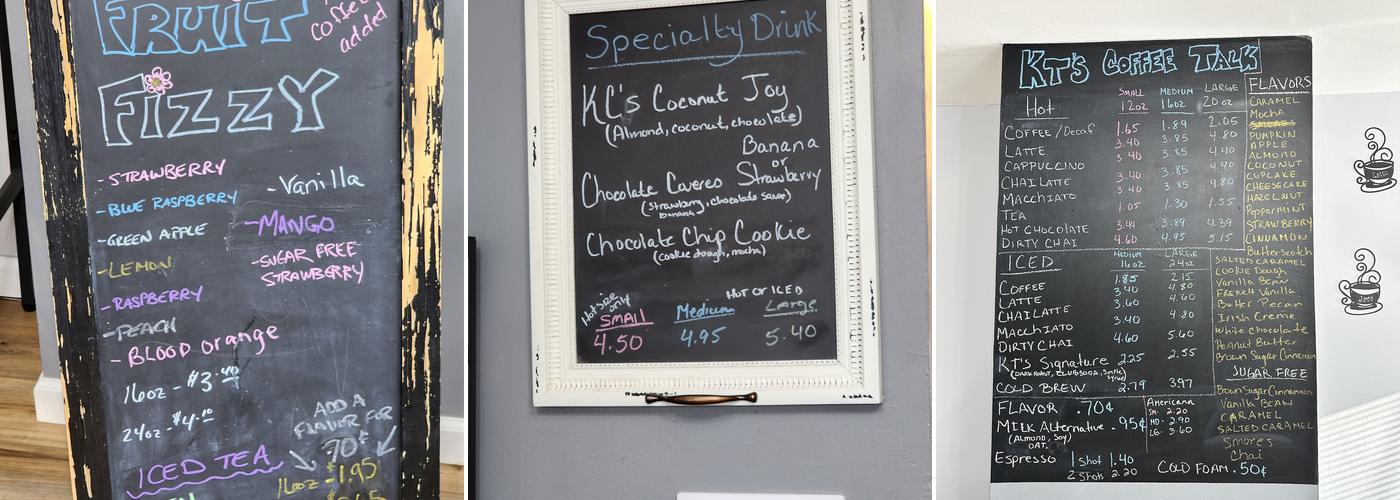 FRUIT
coffee
added
FIZZY
-STRAWBERRY
-BLUE RASPBERRY
-GREEN APPLE
-LEMON
-RASPBERRY
-PEACH
-BLOOD orange
-Vanilla
-MANGO
-SUGAR FREE
STRAWBERRY
16oz - $3.40
24oz - $4.10
ADD A
FLAVOR FOR
70¢
ICED TEA
16oz $1.95
Specialty Drink
KC's Coconut Joy
(Almond, coconut, chocolate)
Banana
or
Chocolate Covered Strawberry
(Strawberry, chocolate sauce)
Banana
Chocolate Chip Cookie
(cookie dough, mocha)
Hot size
only
HOT OR ICED
SMALL Medium Large
4.50 4.95 5.40
KT'S COFFEE TALK
SMALL MEDIUM LARGE
Hot 12oz 16oz 20oz
COFFEE/Decaf 1.65 1.89 2.05
LATTE 3.40 3.85 4.80
CAPPUCCINO 3.40 3.85 4.40
CHAI LATTE 3.40 3.85 4.40
MACCHIATO 3.40 3.85 4.80
TEA 1.05 1.30 1.55
HOT CHOCOLATE 3.44 3.89 4.39
DIRTY CHAI 4.60 4.95 5.15
ICED
MEDIUM LARGE
16oz 24oz
COFFEE 1.85 2.15
LATTE 3.40 4.80
CHAI LATTE 3.60 4.60
MACCHIATO 3.40 4.80
DIRTY CHAI 4.60 5.60
KT'S Signature 2.25 2.55
COLD BREW 2.79 3.97
FLAVOR .70¢
MILK Alternative .95¢
(Almond, Soy)
OAT
Espresso 1 Shot 1.40
2 Shots 2.20
Americana
SM- 2.20
MD- 2.90
LG- 3.60
COLD FOAM .50¢
FLAVORS
CARAMEL
Mocha
PUMPKIN
APPLE
ALMOND
COCONUT
CUPCAKE
CHEESECAKE
HAZELNUT
PepperMINT
STRAWBERRY
CINNAMON
Butterscotch
SALTED CARAMEL
COOKIE Dough
Vanilla Bean
FRENCH Vanilla
Butter Pecan
Irish Creme
White Chocolate
Peanut Butter
Brown Sugar Cinnamon
SUGAR FREE
Brown Sugar Cinnamon
Vanilla BEAN
CARAMEL
SALTED CARAMEL
Smores
Chai